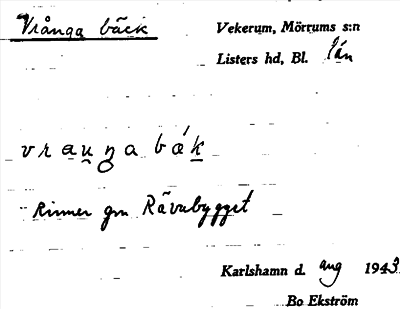 Vrånga bäck
Vekerum, Mörrums s:n
Listers hd, Bl. län
vrauŋa bǽk
Rinner gm Rävabygget
Karlshamn d. aug 1943
Bo Ekström